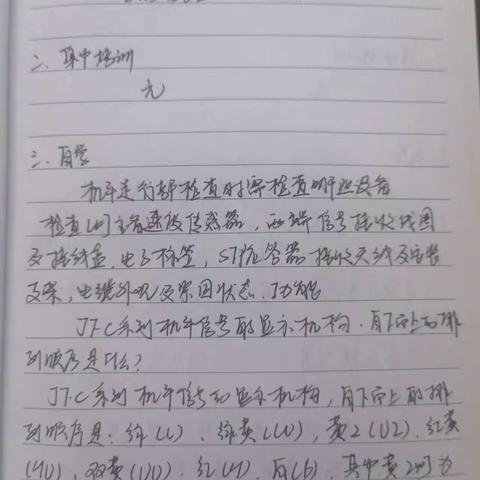 二、集中培训
无
三、自学
机车走行部检查时需检查哪些设备
检查的主要速度传感器，两端信号接收线圈
及接线盒，电子标签，应答器接收天线及安装
支架，电缆外观及紧固状态、功能
JT-C系列机车信号的显示机构，自下向上的排
列顺序是什么？
JT-C系列机车信号的显示机构，自下向上的排
列顺序是：绿(L)、绿黄(LU)，黄2(U2)、红黄
(HU)，双黄(UU)、红(H)、白(b)，其中黄2灯为